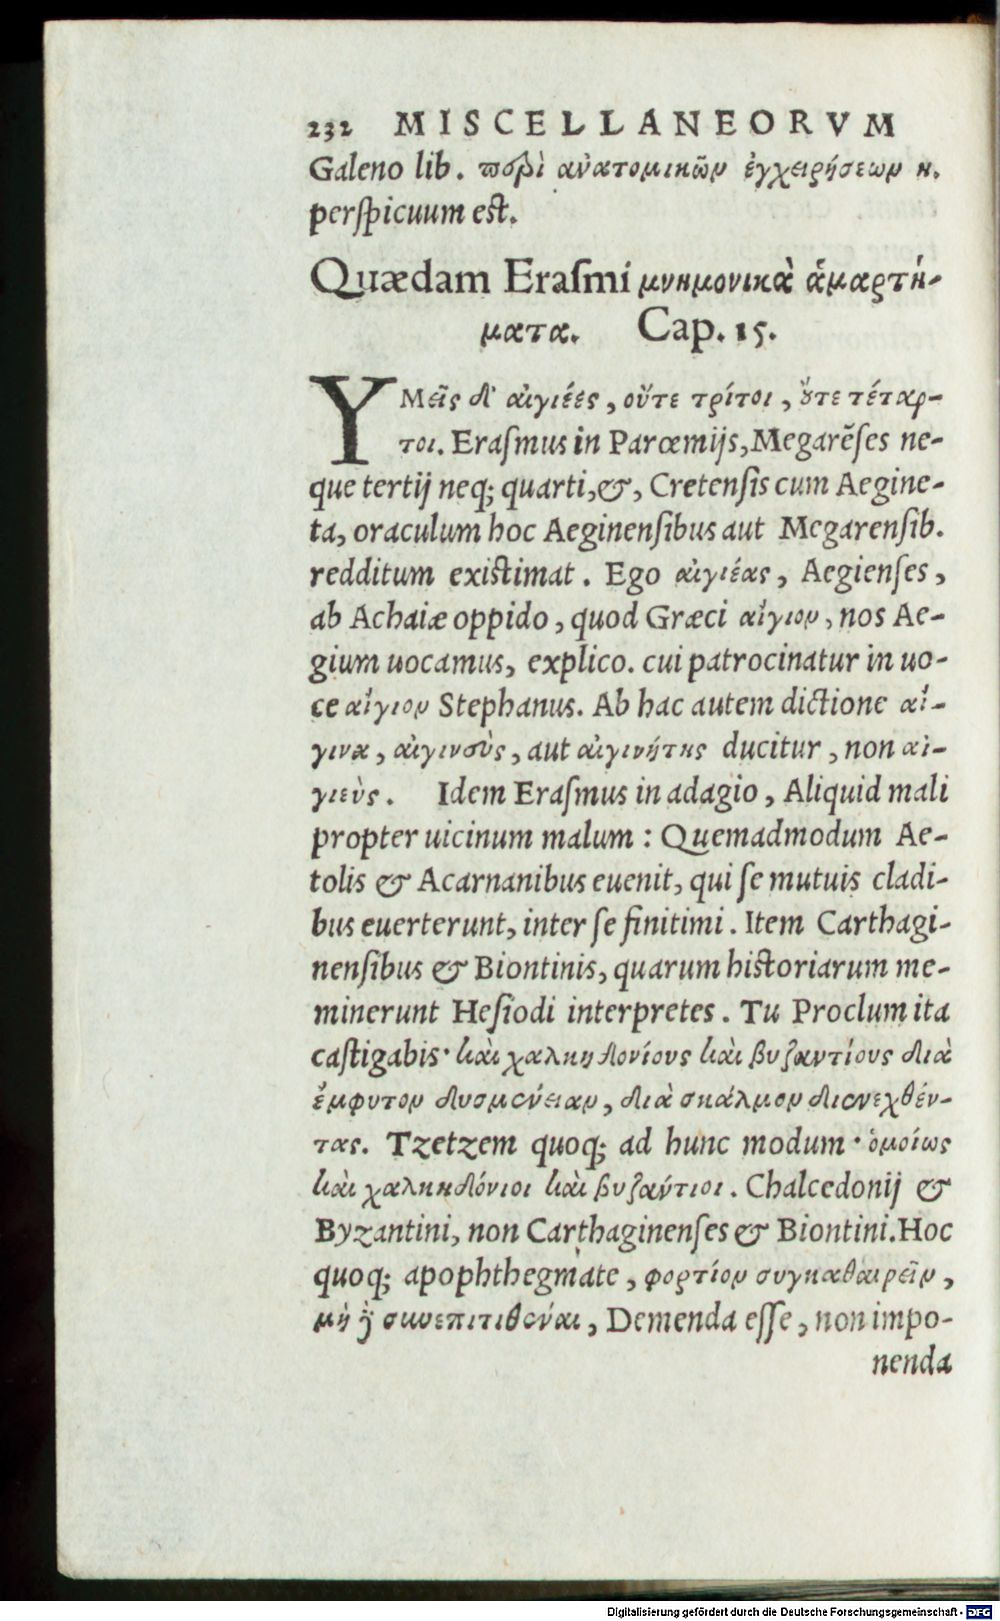 232 MISCELLANEORVM
Galeno lib. περὶ ἀνατομικῶν ἐγχειρήσεων η.
perſpicuum eſt.
Quædam Eraſmi μνημονικὰ ἁμαρτή-
ματα. Cap. 15.
YΜεῖς δ' αἰγιέες, οὔτε τρίτοι, ȣ̓́τε τέταρ-
τοι. Eraſmus in Parœmijs, Megarẽſes ne-
que tertij neq; quarti, &, Cretenſis cum Aegine-
ta, oraculum hoc Aeginenſibus aut Megarenſib.
redditum exiſtimat. Ego αἰγιέας, Aegienſes,
ab Achaiæ oppido, quod Græci αἴγιον, nos Ae-
gium uocamus, explico. cui patrocinatur in uo-
ce αἴγιον Stephanus. Ab hac autem dictione αἴ-
γινα, αἰγινεὺς, aut αἰγινήτης ducitur, non αἰ-
γιεὺς. Idem Eraſmus in adagio, Aliquid mali
propter uicinum malum: Quemadmodum Ae-
tolis & Acarnanibus euenit, qui ſe mutuis cladi-
bus euerterunt, inter ſe finitimi. Item Carthagi-
nenſibus & Biontinis, quarum hiſtoriarum me-
minerunt Heſiodi interpretes. Tu Proclum ita
caſtigabis· καὶ χαλκηδονίους καὶ βυζαντίους διὰ
ἔμφυτον δυσμένειαν, διὰ σκάλμον διενεχθέν-
τας. Tzetzem quoq; ad hunc modum· ὁμοίως
καὶ χαλκηδόνιοι καὶ βυζάντιοι. Chalcedonij &
Byzantini, non Carthaginenſes & Biontini. Hoc
quoq; apophthegmate, φορτίον συγκαθαιρεῖν,
μὴ ȝ̀ συνεπιτιθέναι, Demenda eſſe, non impo-
nenda
Digitalisierung gefördert durch die Deutsche Forschungsgemeinschaft - DFG